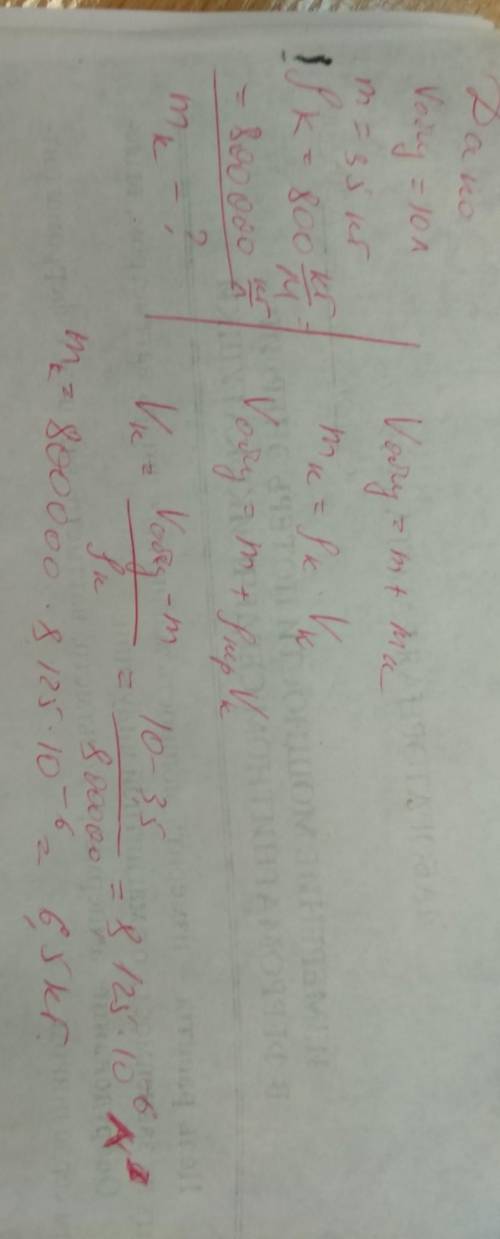 Дано
Vобщ = 10 л
m = 3,5 кг
ρк = 800 кг/м =
= 800 000 кг/л
mк - ?
Vобщ = m + mк
mк = ρк · Vк
Vобщ = m + ρкер Vк
Vк = (Vобщ - m)/ρк = (10 - 3,5)/800000 = 8,125 · 10⁻⁶ л
mк = 800000 · 8,125 · 10⁻⁶ = 6,5 кг.